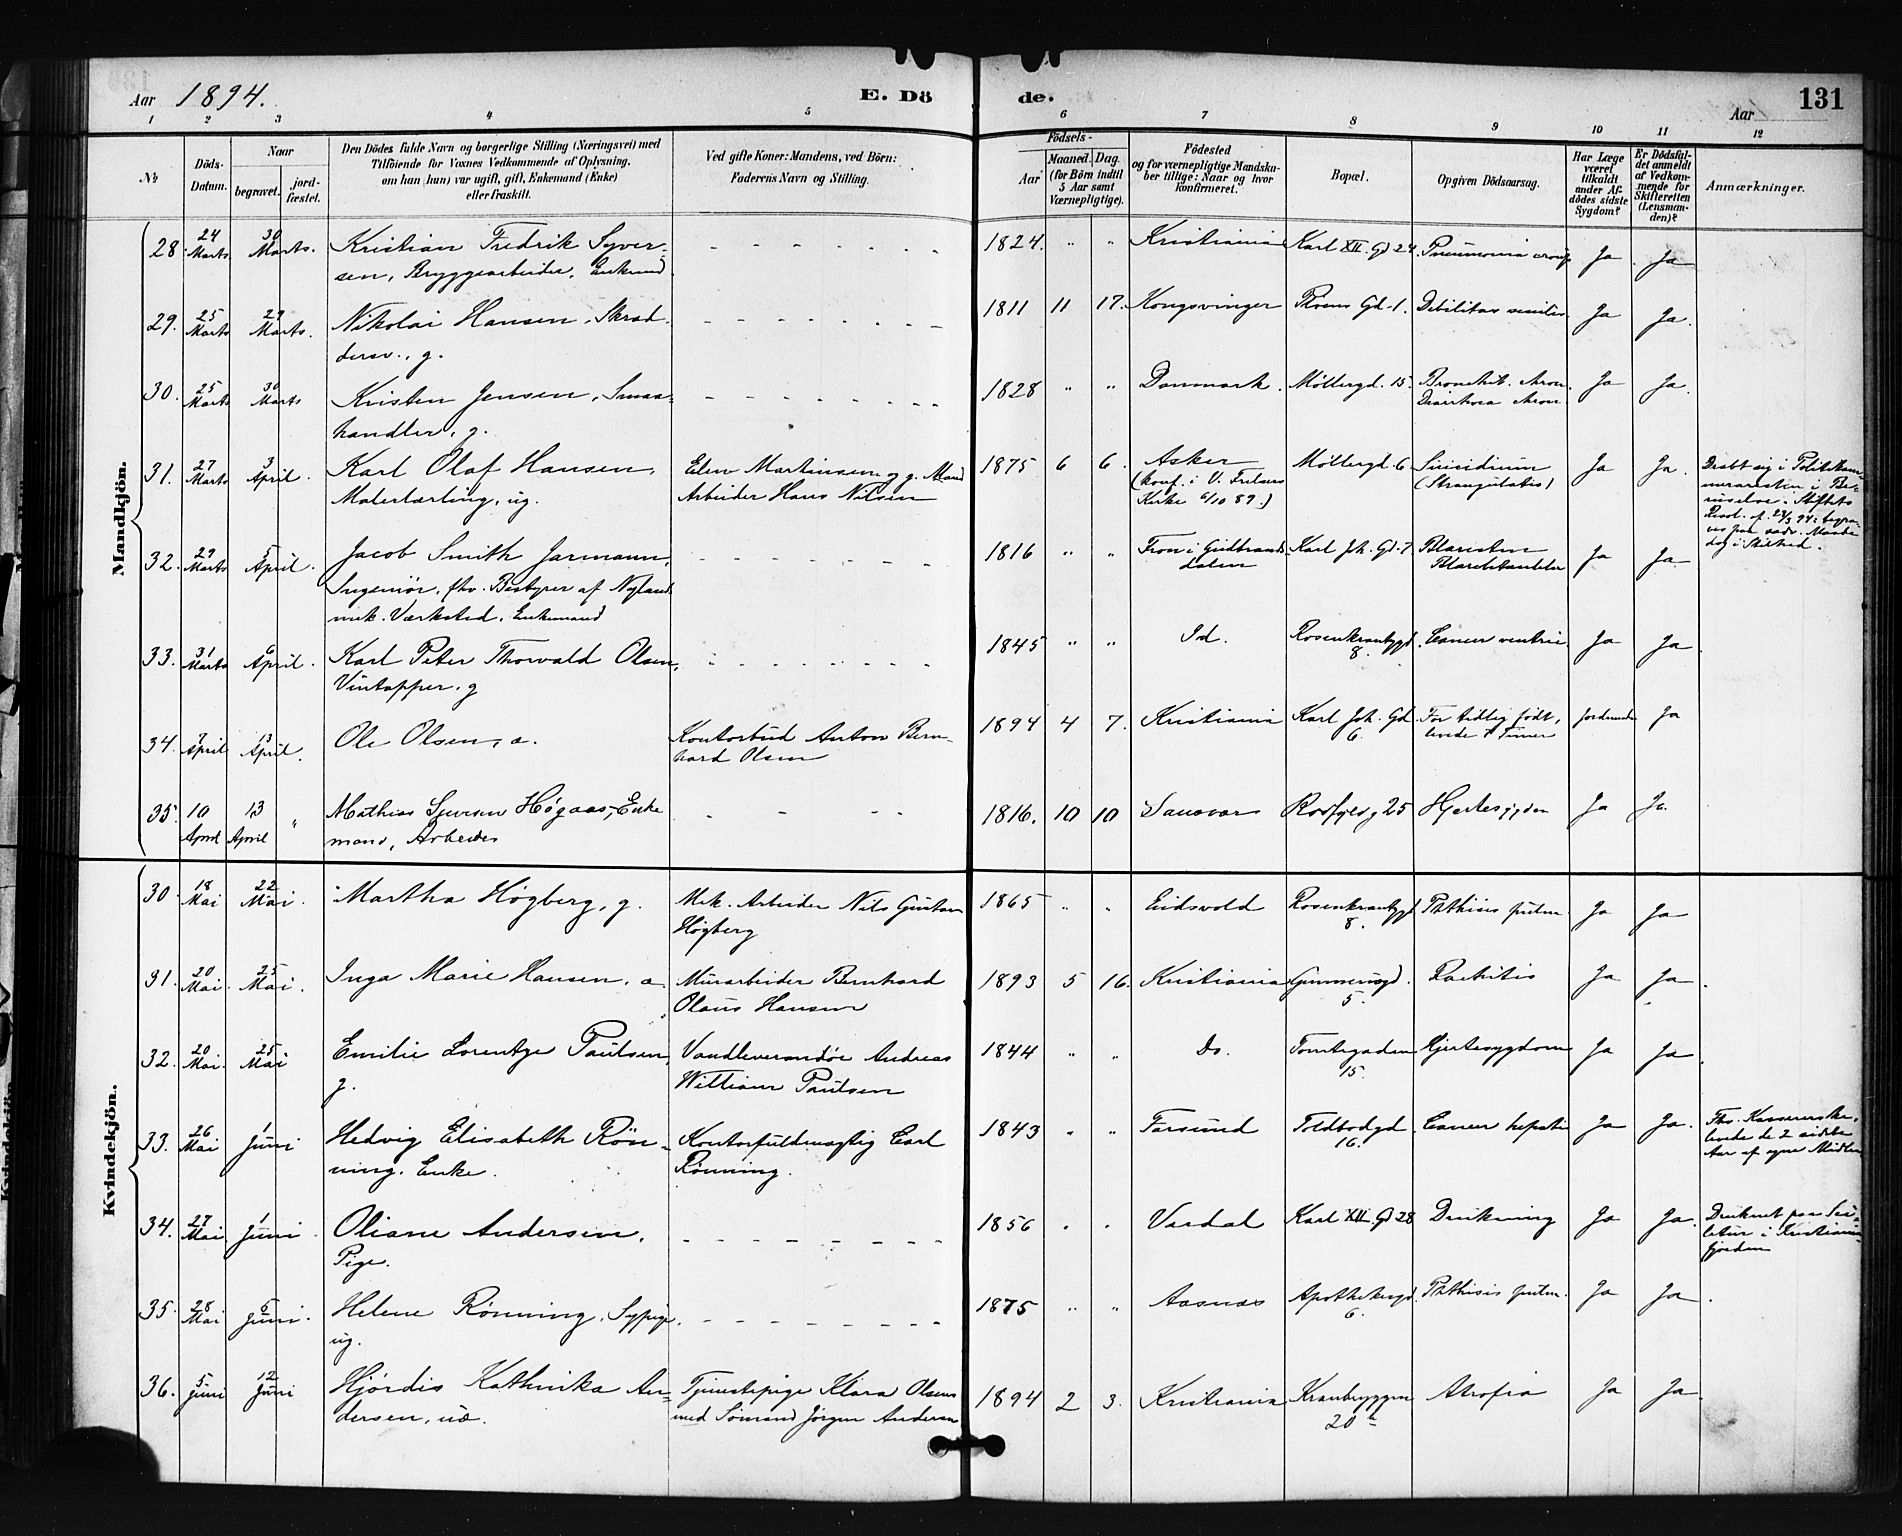 Aar 1894. E. Dö de. Aar 131
1 2 3 4 5 6 7 8 9 10 11 12
№ Döds-Datum. Naar begravet. jord-fæstet.
Den Dödes fulde Navn og borgerlige Stilling (Næringsvei) med
Tilföiende for Voxnes Vedkommende af Oplysning,
om han (hun) var ugift, gift, Enkemand (Enke)
eller fraskilt.
Ved gifte Koner: Mandens, ved Börn:
Faderens Navn og Stilling.
Födsels-
Aar Maaned. Dag.
(for Börn indtil
5 Aar samt
Værnepligtige).
Födested
og for værnepligtige Mandska-
ber tillige: Naar og hvor
konfirmeret.
Bopæl.
Opgiven Dödsaarsag.
Har Læge
været
tilkaldt
under Af-
dödes sidste
Sygdom?
Er Dödsfal-
det anmeldt
af Vedkom-
mende for
Skifteretten
(Lensman-
den)?
Anmærkninger.
Mandkjön.
28. 24 Marts 30 Marts. Kristian Fredrik Syver- 1824. " " Kristiania Karl XII. Gd 24. Pneumonia croup Ja Ja
sen, Bryggearbeider, Enkemd.
29. 25 Marts 29 Marts. Nikolai Hansen, Skræd- 1811 11 17. Kongsvinger Gd. 1. Debilitas senilis Ja Ja.
dersv., g.
30. 25 Marts 30 Marts Kristen Jensen, Smaa- 1828 " " Danmark. Møllergd. 15. Bronchit. chron. Ja Ja.
handler, g. Diarrhoea chron.
31. 27 Marts 3 April. Karl Olaf Hansen, Elen Martinsen og g. Mand 1875 6 6. Asker Møllergd. 6 Suicidium Ja Ja.
Malerlærling, ug. Arbeider Hans Nilsen (konf. i V. Frelsers (Strangulatio)
Kirke 6/10 89.)
Dræbt sig i Politikam-
merarresten i Be-
ruselse. Stiftets
Resol. af 28/3 94: begra-
ves paa sædv. Maade
dog i Stilhed.
32. 29 Marts 5 April. Jacob Smith Jarmann, 1816 " " Fron i Gudbrands- Karl Joh. Gd. 7. Blæresten Ja Ja
Ingeniør, fhv. Bestyrer af Nylands dalen Blærebetændelse
mek. Værksted, Enkemand
33. 31 Marts 6 April. Karl Peter Thorvald Olsen, 1845 " " Id. Rosenkrantzgd. 8. Cancer ventric Ja Ja
Vintapper. g
34. 7 April 13 April. Ole Olsen, æ. Kontorbud Anton Bern- 1894 4 7. Kristiania Karl Joh. Gd. 6. For tidlig født, Jordemoder Ja
hard Olsen levede 7 Timer
35. 10 April 13 April " Mathias Syversen Høgaas, Enke 1816. 10 10 Sansvær 25 Hjertesygdom Ja Ja.
mand, Arbeider
Kvindekjön.
30. 18 Mai 22 Mai. Martha Högberg, g. Mek. Arbeider Nils Gustav 1865 " " Eidsvold Rosenkrantzgd 8. Phthisis pulm. Ja Ja
Högberg
31. 20 Mai. 25 Mai. Inga Marie Hansen, æ. Murarbeider Bernhard 1893 5 16. Kristiania 5. Rachitis Ja Ja
Olaus Hansen
32. 20 Mai. 25 Mai Emilie Lorentze Paulsen, Vandleverandør Andreas 1844 " " Do. Tomtegaden 15. Hjertesygdom Ja Ja
g. William Paulsen
33. 26 Mai 1 Juni Hedvig Elisabeth Røn- Kontorfuldmægtig Carl 1843 " " Farsund Toldbodgd. 16. Cancer hepatis Ja Ja.
ning. Enke. Rønning.
Fhv. Kassererske,
levede de 2 sidste
Aar af egne Midler
34. 27 Mai 1 Juni. Oliane Andersen, 1856 " " Værdal Karl XII Gd 28 Drukning Ja Ja.
Pige.
Druknet paa Sei-
letur i Kristiania-
fjorden
35. 28 Mai 5 Juni. Helene Rønning, Sypige. 1875 " " Aasnæs Apothekergd. 6. Phthisis pulm. Ja Ja
ug.
36. 5 Juni 12 Juni Hjørdis Kathinka An- Tjenestepige Klara Olsen 1894 2 3. Kristiania Kranbryggen Atrofia Ja Ja
dersen, uæ. med Sömand Jörgen Andersen 20